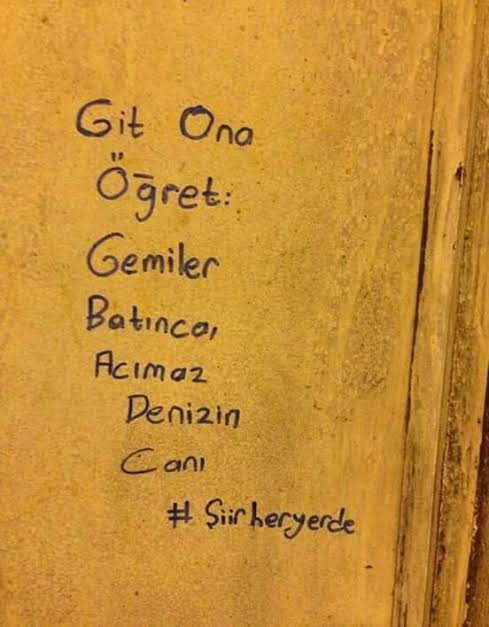 Git Ona
Öğret:
Gemiler
Batınca,
Acımaz
Denizin
Canı
# Şiirheryerde